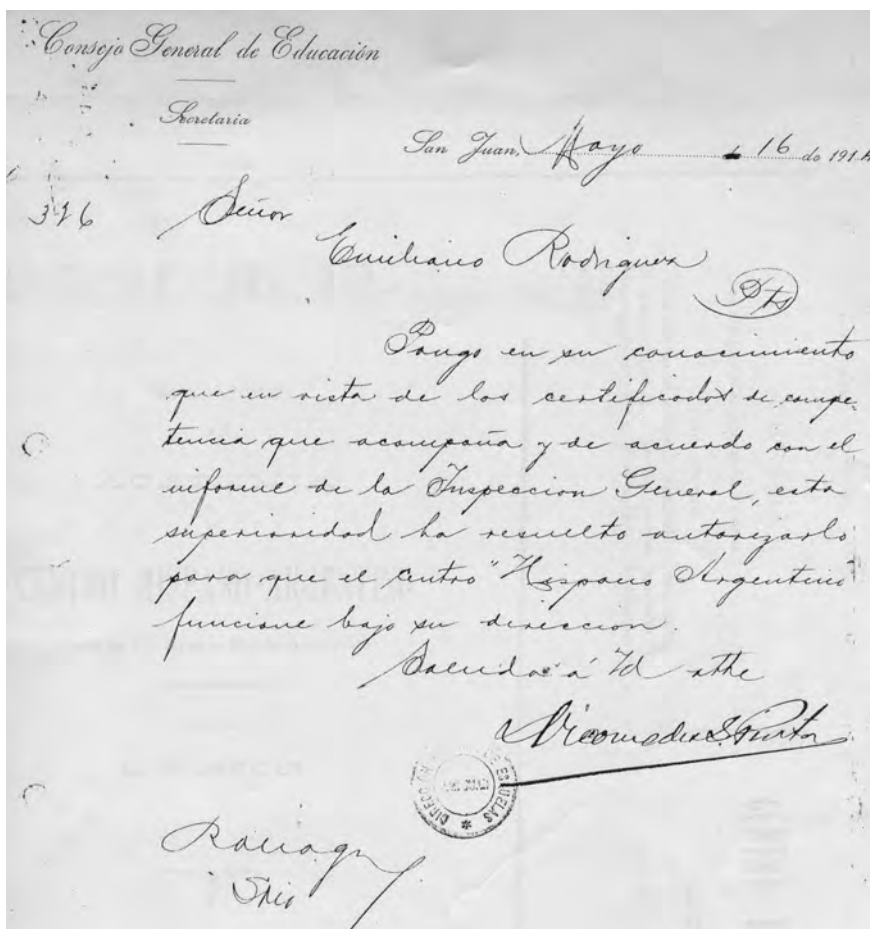 Consejo General de Educación
Secretaria
San Juan, Mayo 16 de 191
326
Señor
Emiliano Rodriguez
Pte
Pongo en su conocimiento
que en vista de los certificados de compe-
tencia que acompaña y de acuerdo con el
informe de la Inspeccion General, esta
superioridad ha resuelto autorizarlo
para que el centro "Hispano Argentino
funcione bajo su direccion.
Saludo á Vd atte
Nicomedes S. Pinto
ESCUELAS
Srio